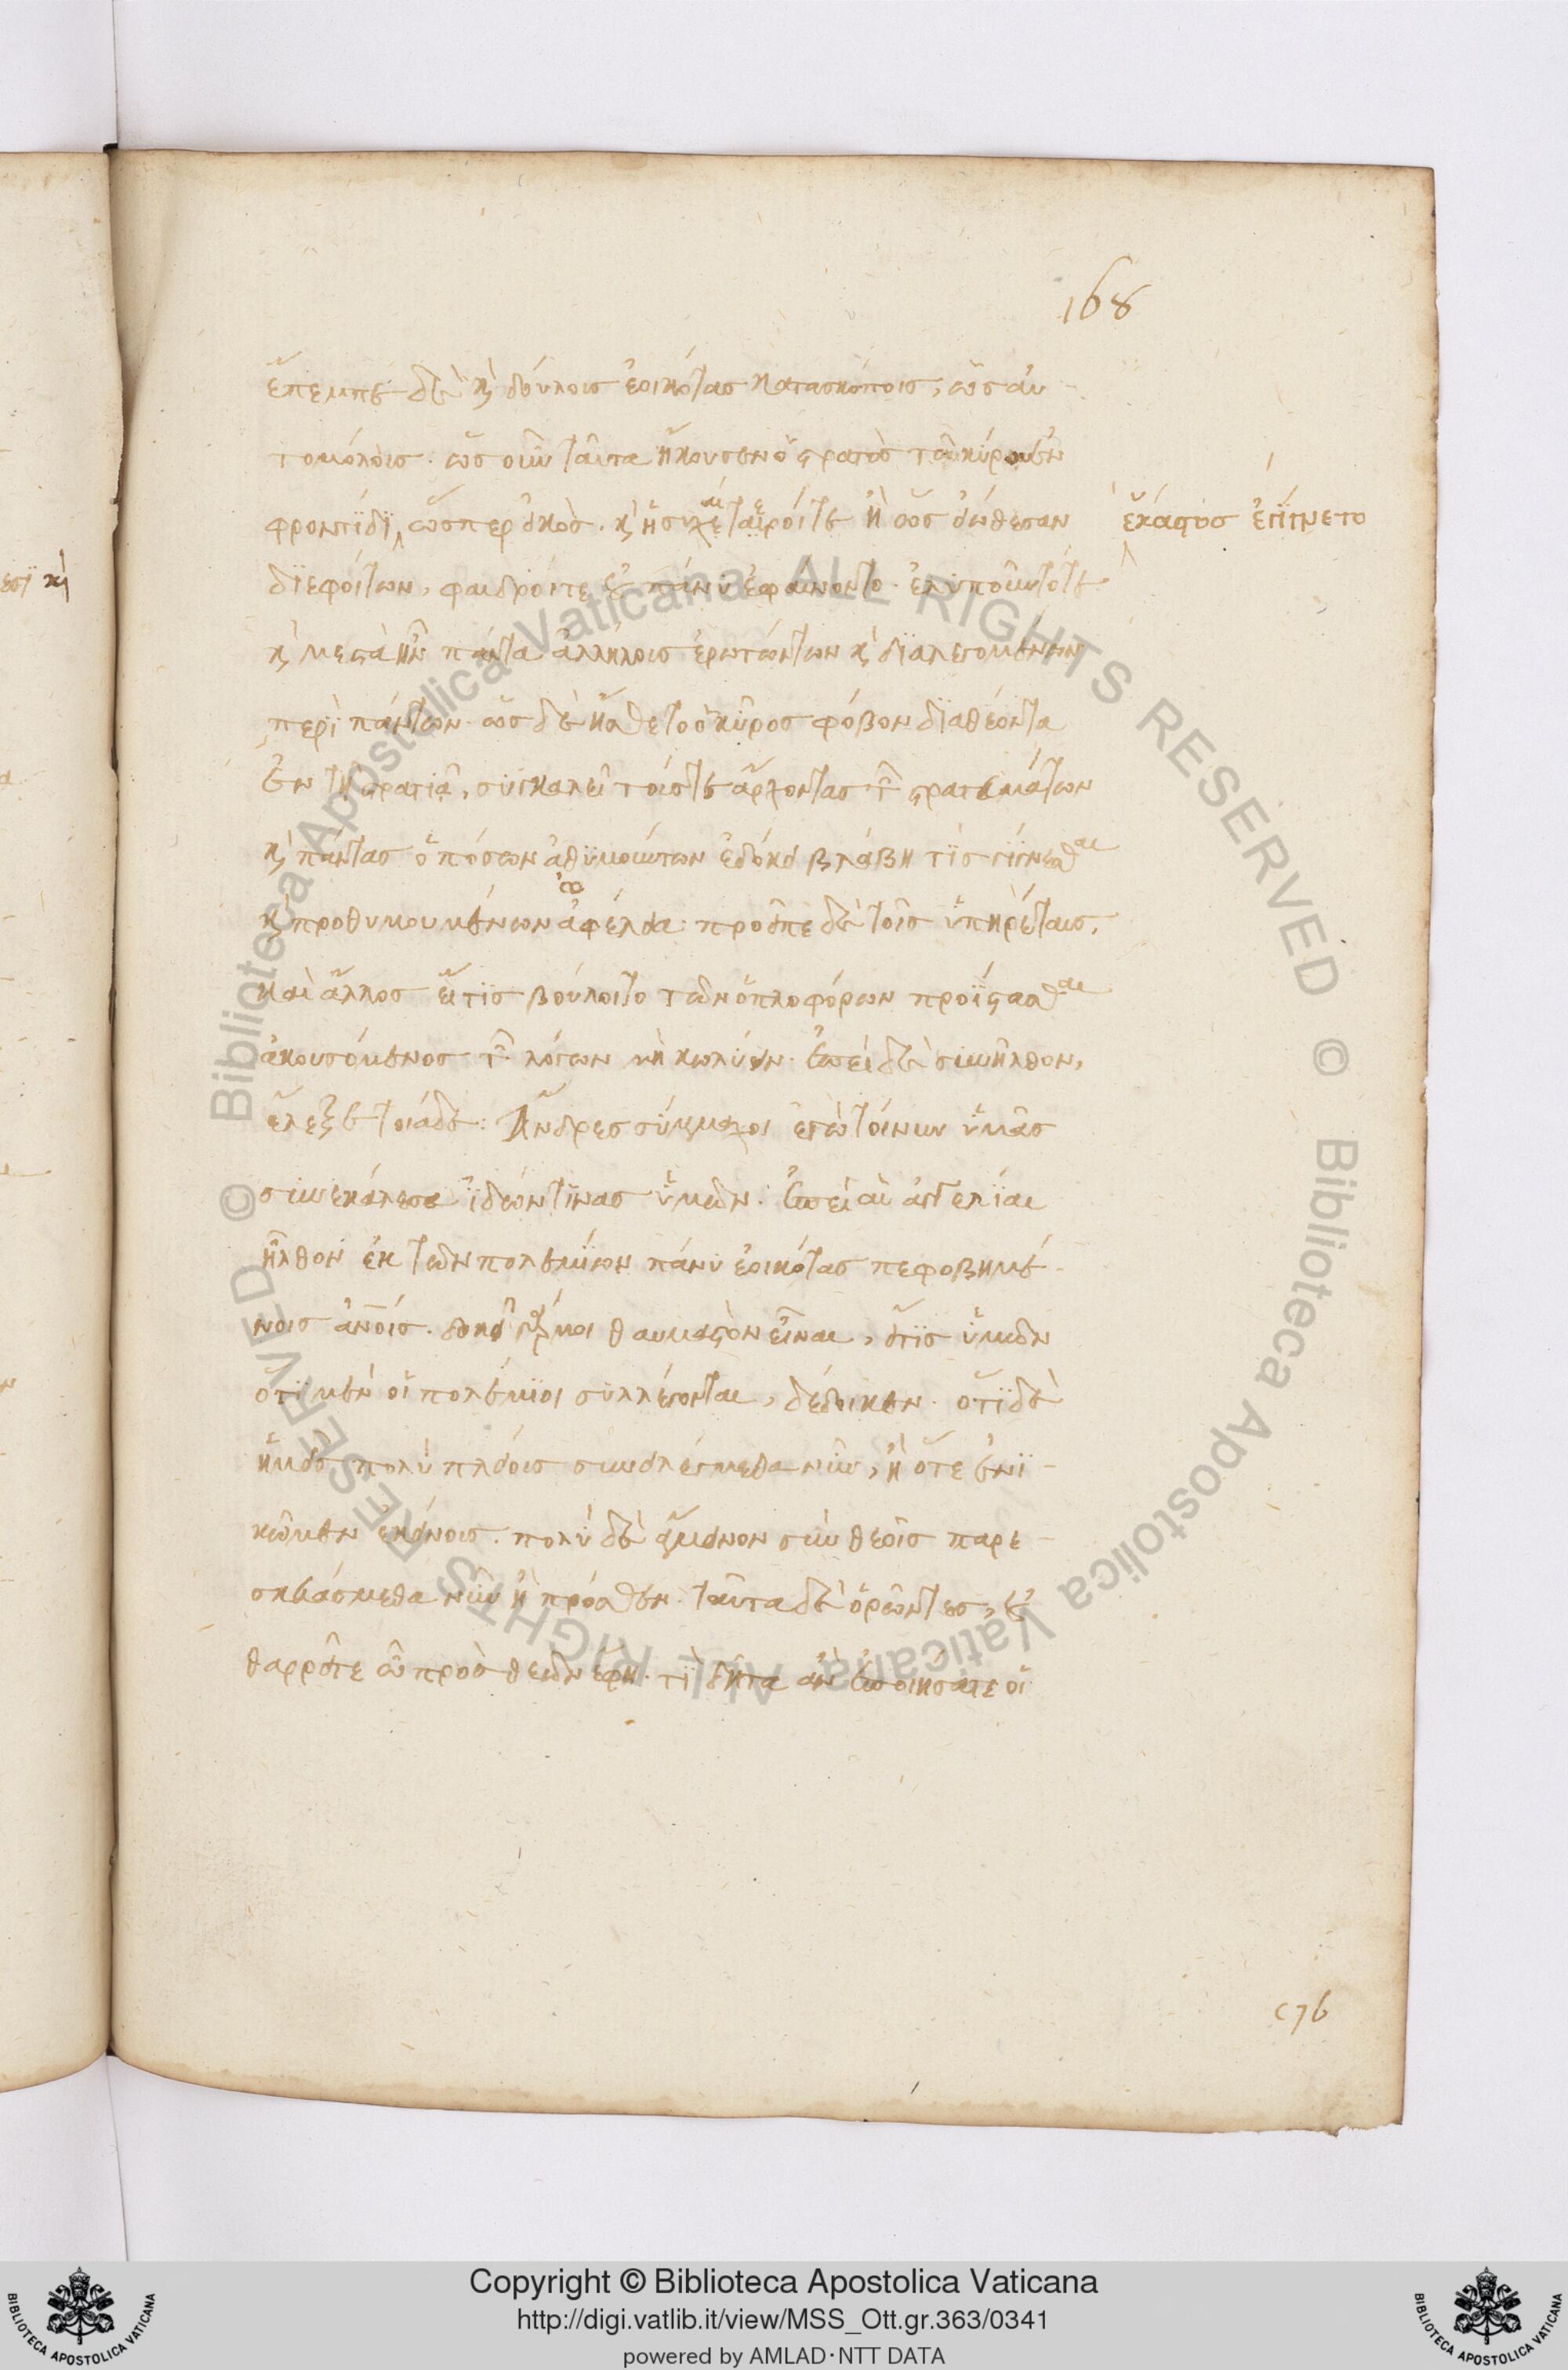 168
ἔπεμπε δὲ κ̀ δούλοις ἐοικότας κατασκόποις, ὡς αὐ-
τομόλοις. ὡς οὖν ταῦτα ἤκουσεν ὁ στρατὸς τοῦ κύρου ἐν
φροντίδι ὥσπερ εἰκὸς. κ̀ ἡσυχαίτεροί τε ἢ ὡς εἰώθεσαν
ἕκαστος ἐγίγνετο
διεφοίτων, φαιδροί τε οὐ πάνυ ἐφαίνοντο. ἐκυκλοῦντό τε
κ̀ μεστὰ ἦν πάντα ἀλλήλοις ἐρωτώντων κ̀ διαλεγομένων
περὶ πάντων. ὡς δὲ ᾔσθετο ὁ κῦρος φόβον διαθέοντα
ἐν τῇ στρατιᾷ, συγκαλεῖ τούς τε ἄρχοντας τῶν στρατευμάτων
κ̀ πάντας ὁπόσων ἀθυμούντων ἐδόκει βλάβη τις γίγνεσθαι
κ̀ προθυμουμένων ὠφέλεια. προεῖπε δὲ τοῖς ὑπηρέταις,
καὶ ἄλλος εἴ τις βούλοιτο τῶν ὁπλοφόρων προΐστασθαι
ἀκουσόμενος τῶν λόγων μὴ κωλύειν. ἐπεὶ δὲ συνῆλθον,
ἔλεξε τοιάδε: Ἄνδρες σύμμαχοι ἐγὼ τοίνυν ὑμᾶς
συνεκάλεσα ἰδών τινας ὑμῶν. ἐπεὶ αἱ ἀγγελίαι
ἦλθον ἐκ τῶν πολεμίων πάνυ ἐοικότας πεφοβημέ-
νοις ἀνοις. δοκεῖ γάρ μοι θαυμαστὸν εἶναι, εἴ τις ὑμῶν
ὅτι μὲν οἱ πολέμιοι συλλέγονται, δέδοικεν. ὅτι δὲ
ἡμεῖς πολὺ πλείους συνειλέγμεθα νῦν, ἢ ὅτε ἐνι-
κῶμεν ἐκείνους. πολὺ δὲ ἄμεινον σὺν θεοῖς παρε-
σκευάσμεθα νῦν ἢ πρόσθεν. ταῦτα δὲ ὁρῶντες, οὐ
θαρρεῖτε ὦ πρὸς θεῶν ἔφη. τί δῆτα ἂν ἐποιήσατε οἱ
c 76
Copyright © Biblioteca Apostolica Vaticana
http://digi.vatlib.it/view/MSS_Ott.gr.363/0341
powered by AMLAD·NTT DATA